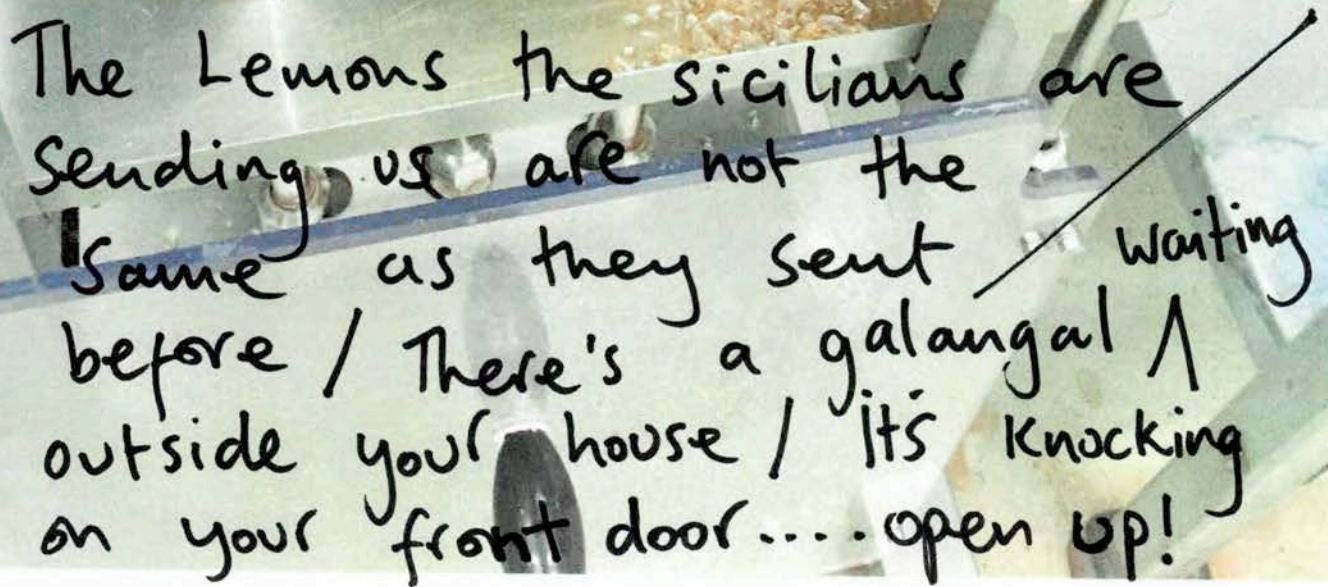 The Lemons the sicilians are
sending us are not the
same as they sent / waiting
before / There's a galangal ∧
outside your house / it's knocking
on your front door.... open up!